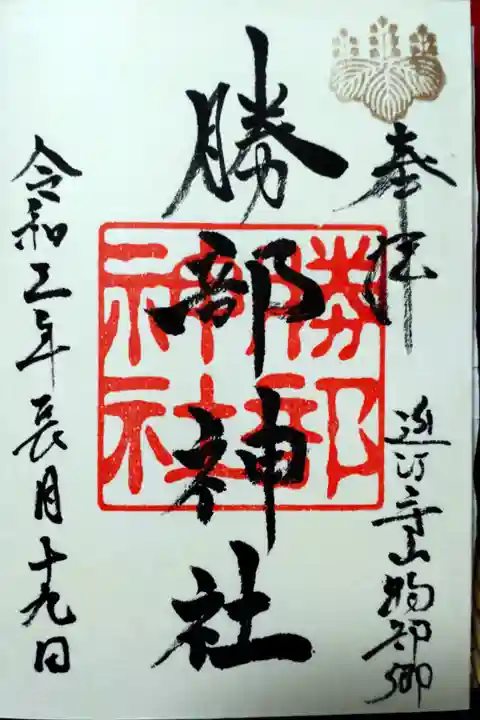 奉拝
近江守山物部郷
勝部神社
勝部神社
令和三年長月十九日